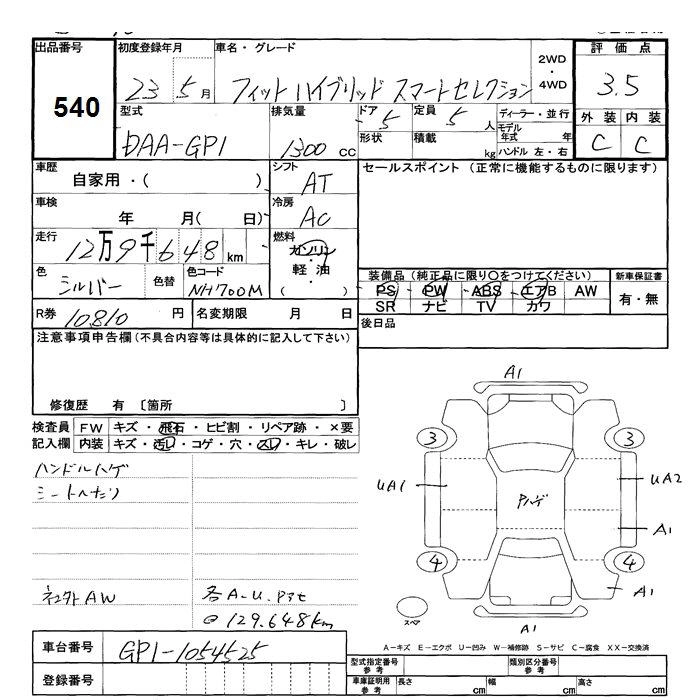 出品番号 初度登録年月 車名・グレード 評価点
540 23 5月 フィットハイブリッド スマートセレクション 2WD・4WD 3.5
型式 排気量 ドア 5 定員 5人 ディーラー・並行 外装 内装
DAA-GP1 1300cc 形状 積載 kg モデル年式 年 ハンドル 左・右 C C
車歴 自家用・( ) シフト AT セールスポイント (正常に機能するものに限ります)
車検 年 月( 日) 冷房 AC
走行 12万9千648km 燃料 ガソリン・軽油 ( )
色 シルバー 色替 色コード NH700M 装備品(純正品に限り○をつけてください) 新車保証書
PS PW ABS エアB AW 有・無
SR ナビ TV カワ
R券 10810円 名変期限 月 日 後日品
注意事項申告欄(不具合内容等は具体的に記入して下さい)
修復歴 有 〔箇所 〕
検査員 FW キズ・飛石・ヒビ割・リペア跡・×要
記入欄 内装 キズ・汚レ・コゲ・穴・スレ・キレ・破レ
ハンドルハゲ
シートヘタリ
A1
3 3
UA1 Pハゲ UA2
A1
4 4
A1
スペア
A1
AW
各A-U.
@129.648km
A-キズ E-エクボ U-凹み W-補修跡 S-サビ C-腐食 XX-交換済
車台番号 GP1-1054525
登録番号
型式指定番号 参考 類別区分番号 参考
車庫証明用 参考 長さ cm 幅 cm 高さ cm